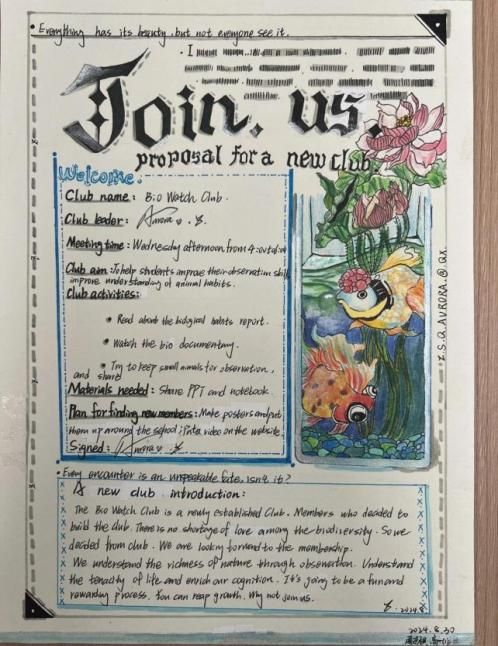 Everything has its beauty, but not everyone see it.
Join. us.
proposal for a new club.
Welcome.
Club name: Bio Watch Club.
Club leader: Aurora
Meeting time: Wednesday afternoon from 4:
Club aim: To help students improve their observation skill
improve understanding of animal habits.
Club activities:
• Read about the biological habits report.
• Watch the bio documentary.
• Try to keep small animals for observation,
and share
Materials needed: Share PPT and notebook
Plan for finding new members: Make posters and put
them up around the school; Put a video on the website
Signed: Aurora
Z.S.Q. AURORA. @ QX.
• Every encounter is an unspeakable fate, isn't it?
A new club introduction:
The Bio Watch Club is a newly established Club. Members who decided to
build the club. There is no shortage of love among the biodiversity. So we
decided from club. We are looking forward to the membership.
We understand the richness of nature through observation. Understand
the tenacity of life and enrich our cognition. It's going to be a fun and
rewarding process. You can reap growth. Why not join us.
2024.8.
2024.8.30